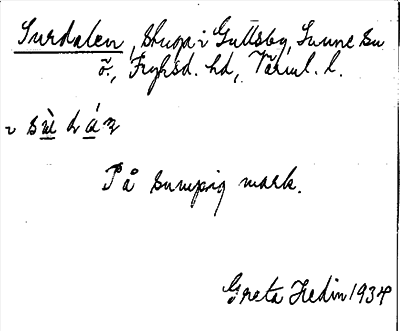 Surdalen, stuga i Guttsby, Sunne sn
ö., Fryksd. hd, Värml. l.
På sumpig mark.
Greta Hedin 1934